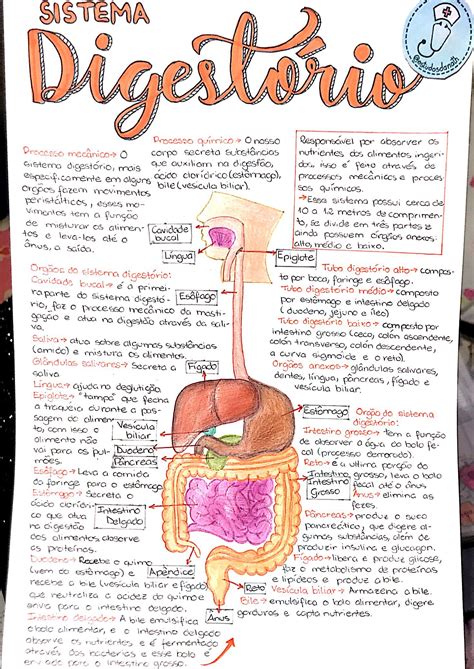 SISTEMA
Digestório
@estudosdanath
Processo mecânico → O
sistema digestório, mais
especificamente em alguns
órgãos fazem movimentos
peristálticos, esses mo-
vimentos tem a função
de misturar os alimen-
tos e leva-los até o
ânus, a saída.
Processo químico → O nosso
corpo secreta substâncias
que auxiliam na digestão,
ácido clorídrico (estômago),
bile (vesícula biliar).
Responsável por observar os
nutrientes dos alimentos ingeri-
dos, isso é feito através de
processos mecânicos e proces-
sos químicos.
→ Esse sistema possui cerca de
10 a 12 metros de comprimen-
to, se divide em três partes e
ainda possuem órgãos anexos.
alto, médio e baixo.
Cavidade
bucal
Língua
Epiglote
Esôfago
Órgãos do sistema digestório:
Cavidade bucal → é a primei-
ra parte do sistema digestó-
rio, faz o processo mecânico da masti-
gação e atua na digestão através da sali-
va.
Saliva → atua sobre algumas substâncias
(amido) e mistura os alimentos.
Glândulas salivares → Secreta a
saliva
Língua → ajuda na deglutição
Epiglote → "tampa" que fecha
a traqueia durante a pas-
sagem do alimen-
to, com isso o
alimento não
vai para os pul-
mões.
Esôfago → Leva a comida
da faringe para o estômago
Estômago → Secreta o
ácido clorídri-
co que atua
na digestão
dos alimentos observe
as proteínas.
Duodeno → Recebe o quimo
(vem do estômago) e
recebe a bile (vesícula biliar e fígado)
que neutraliza a acidez do quimo e
envia para o intestino delgado.
Intestino delgado → A bile emulsifica
o bolo alimentar, e o intestino delgado
observe os nutrientes e é fermentado
através das bactérias e esse bolo é
enviado para o intestino grosso.
Tubo digestório alto → compos-
to por boca, faringe e esôfago.
Tubo digestório médio → composto
por estômago e intestino delgado
(duodeno, jejuno e íleo)
Tubo digestório baixo → composto por
intestino grosso (ceco, cólon ascendente,
cólon transverso, cólon descendente,
a curva sigmoide e o reto).
Órgãos anexos → glândulas salivares,
dentes, língua, pâncreas, fígado e
vesícula biliar.
Fígado
Vesícula
biliar
Duodeno
Pâncreas
Intestino
Delgado
Apêndice
Estômago
Intestino
Grosso
Reto
Ânus
Órgão do sistema
digestório:
Intestino grosso → tem a função
de observer a água do bolo fecal
(processo demorado).
Reto → é a última porção do
intestino grosso, leva o bolo
fecal até o ânus
Ânus → elimina as
fezes.
Pâncreas → produz o suco
pancreático, que digere al-
gumas substâncias, além de
produzir insulina e glucagon.
Fígado → libera e produz glicose,
faz o metabolismo de proteínas
e lipídeos e produz a bile.
Vesícula biliar → Armazena a bile.
Bile → emulsifica o bolo alimentar, digere
gorduras e capta nutrientes.